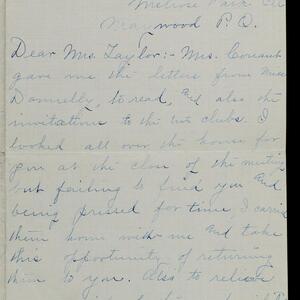 Melrose Park, Ill
Maywood P.O.
Dear Mrs. Taylor:- Mrs. Conant
gave me the letters from Miss
Donnelly, to read, and also the
invitations to the two clubs. I
looked all over the house for
you at the close of the meeting
but failing to find you and
being pressed for time, I carried
them home with me and take
this opportunity of returning
them to you. Also to relieve